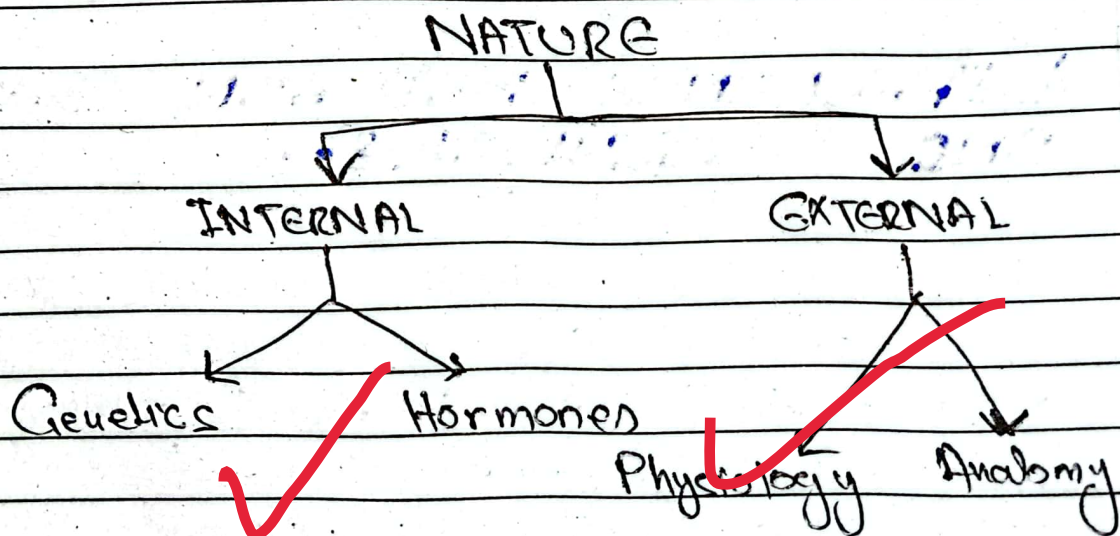 NATURE
INTERNAL EXTERNAL
Genetics Hormones
Physiology Anatomy